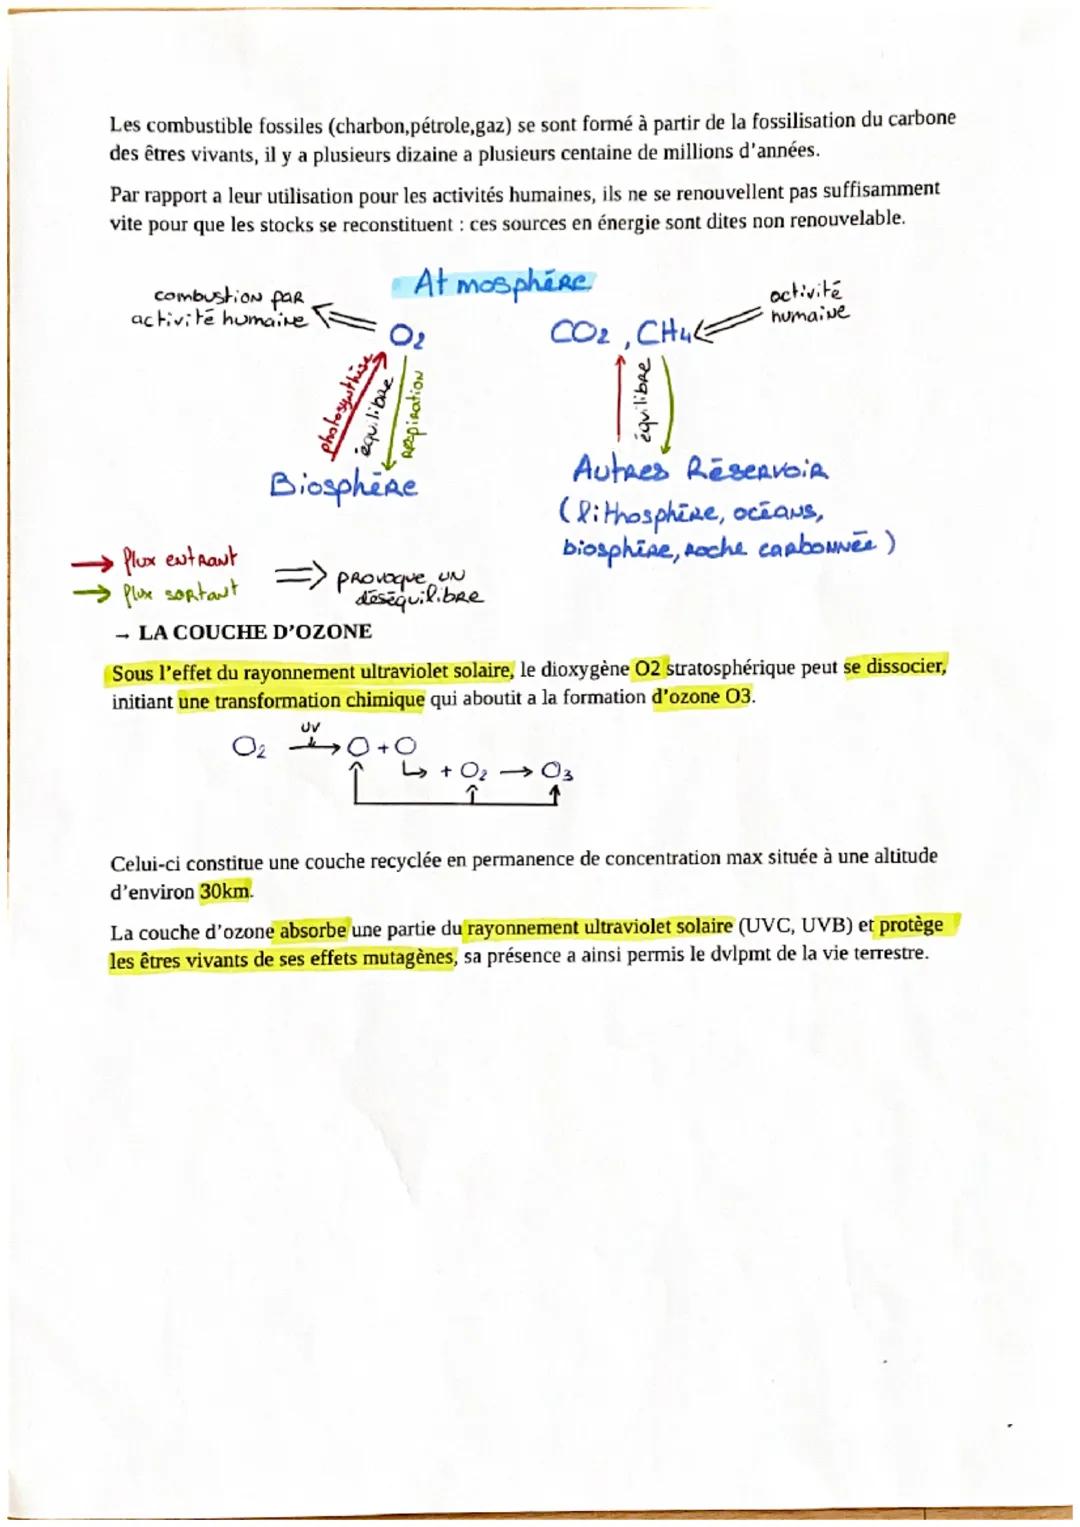 Les combustible fossiles (charbon,pétrole,gaz) se sont formé à partir de la fossilisation du carbone
des êtres vivants, il y a plusieurs dizaine a plusieurs centaine de millions d'années.
Par rapport a leur utilisation pour les activités humaines, ils ne se renouvellent pas suffisamment
vite pour que les stocks se reconstituent : ces sources en énergie sont dites non renouvelable.
Atmosphère
combustion par
activité humaine
O2
CO2, CH4
activité
humaine
photosynthèse
équilibre
respiration
équilibre
Biosphère
Autres Réservoir
(lithosphère, océans,
biosphère, roche carbonnée)
→ flux entrant
→ flux sortant
⇒ provoque un
déséquilibre
→ LA COUCHE D'OZONE
Sous l'effet du rayonnement ultraviolet solaire, le dioxygène O2 stratosphérique peut se dissocier,
initiant une transformation chimique qui aboutit a la formation d'ozone O3.
UV
O2 → O + O
↳ + O2 → O3
Celui-ci constitue une couche recyclée en permanence de concentration max située à une altitude
d'environ 30km.
La couche d'ozone absorbe une partie du rayonnement ultraviolet solaire (UVC, UVB) et protège
les êtres vivants de ses effets mutagènes, sa présence a ainsi permis le dvlpmt de la vie terrestre.